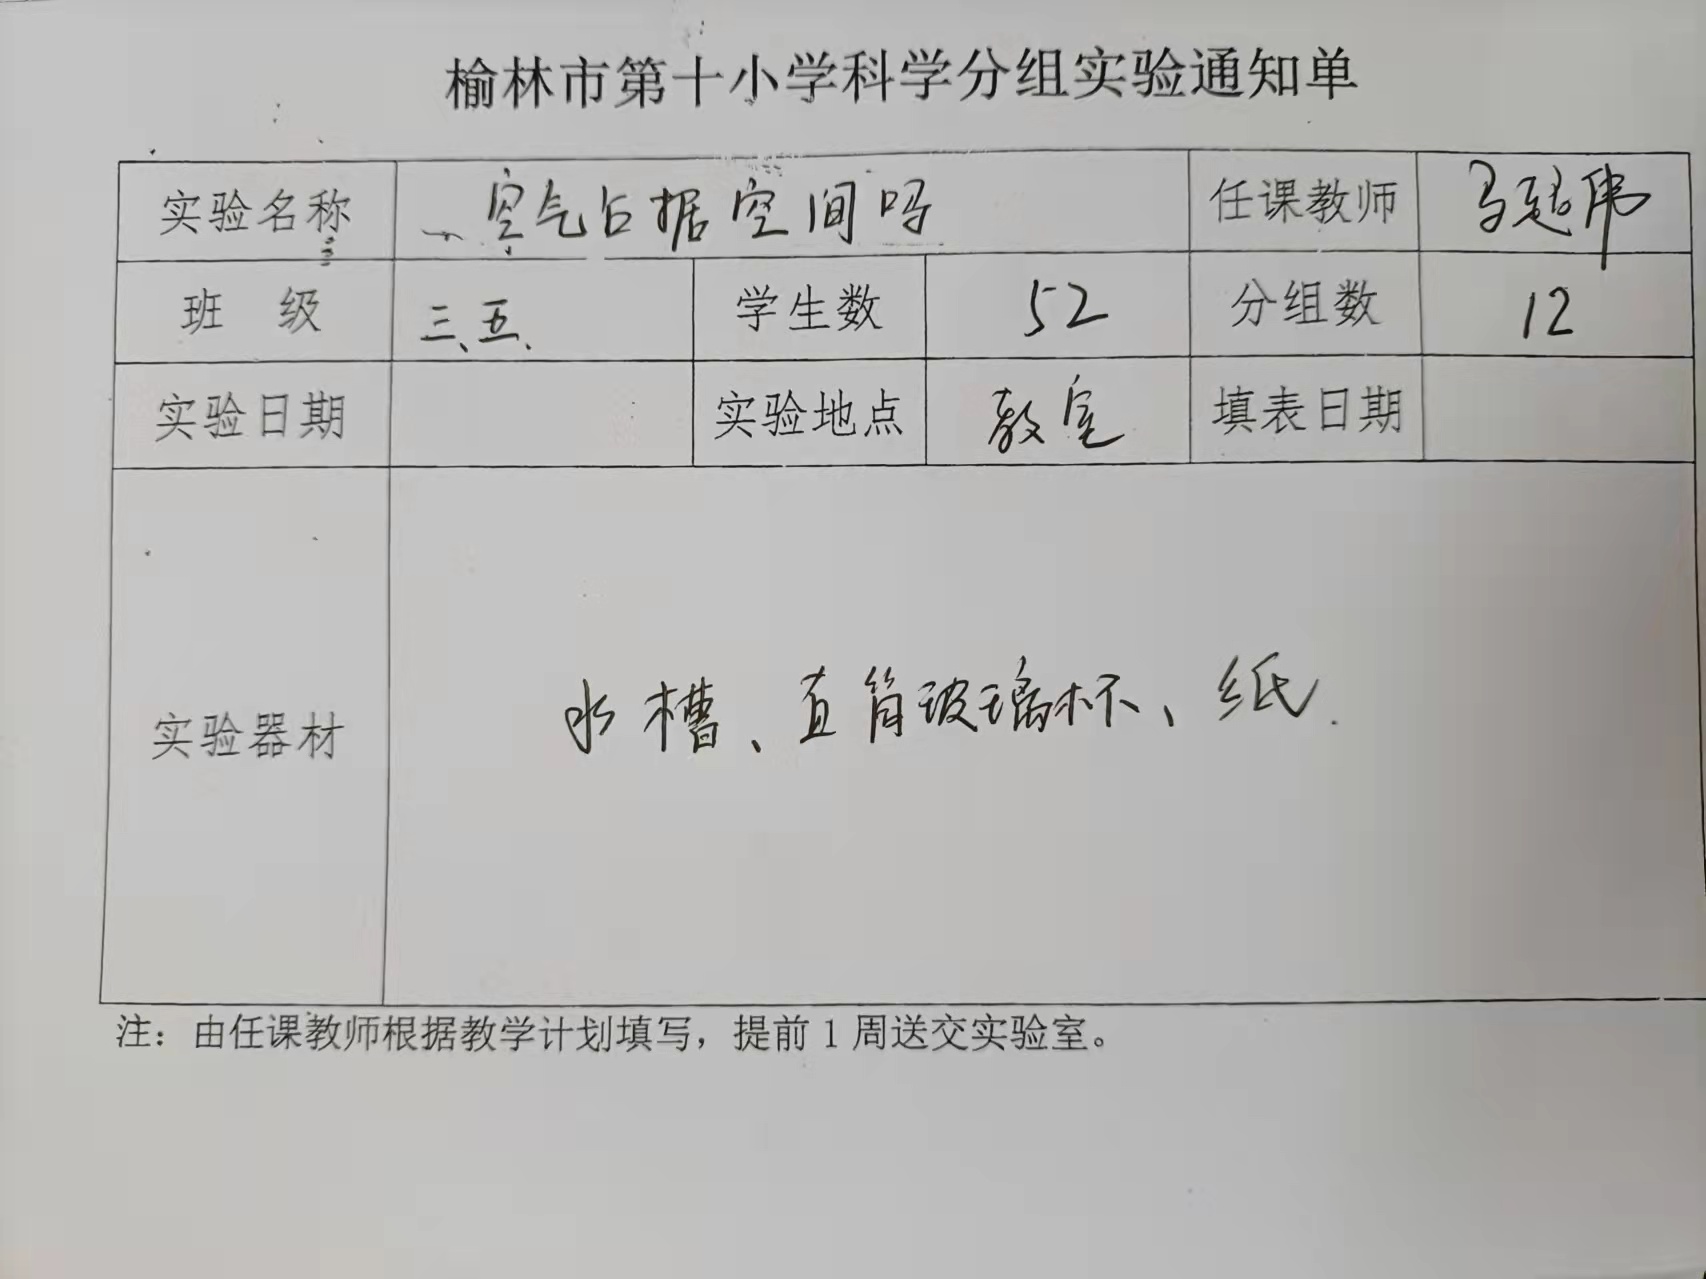 榆林市第十小学科学分组实验通知单
实验名称 空气占据空间吗 任课教师 马超伟
班 级 三、五、 学生数 52 分组数 12
实验日期 实验地点 教室 填表日期
实验器材 水槽、直筒玻璃杯、纸.
注：由任课教师根据教学计划填写，提前1周送交实验室。